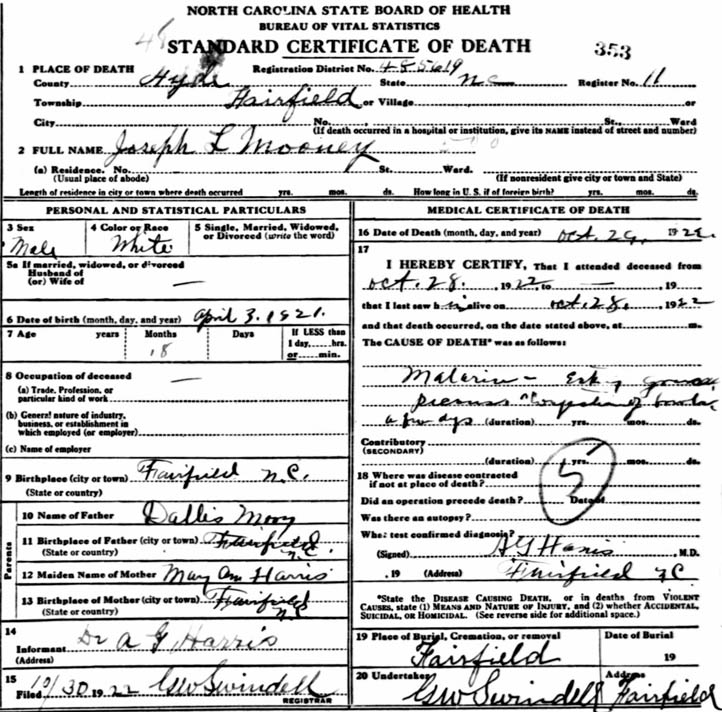 NORTH CAROLINA STATE BOARD OF HEALTH
BUREAU OF VITAL STATISTICS
STANDARD CERTIFICATE OF DEATH
353
1 PLACE OF DEATH Registration District No. 485619
County Hyde State NC Register No. 11
Township Fairfield or Village or
City No. St., Ward
(If death occurred in a hospital or institution, give its NAME instead of street and number)
2 FULL NAME Joseph L Mooney
(a) Residence. No. St. Ward.
(Usual place of abode) (If nonresident give city or town and State)
Length of residence in city or town where death occurred yrs. mos. ds. How long in U. S. if of foreign birth? yrs. mos. ds.
PERSONAL AND STATISTICAL PARTICULARS
3 Sex 4 Color or Race 5 Single, Married, Widowed,
or Divorced (write the word)
Male White
5a If married, widowed, or divorced
Husband of
(or) Wife of —
6 Date of birth (month, day, and year) April 3. 1921.
7 Age years Months Days If LESS than
1 day,....hrs.
or....min.
18
8 Occupation of deceased —
(a) Trade, Profession, or
particular kind of work
(b) General nature of industry,
business, or establishment in
which employed (or employer)
(c) Name of employer
9 Birthplace (city or town) Fairfield N.C.
(State or country)
Parents
10 Name of Father Dallis
11 Birthplace of Father (city or town) Fairfield
(State or country) N.C.
12 Maiden Name of Mother Mary Ann Harris
13 Birthplace of Mother (city or town) Fairfield
(State or country) N.C.
14
Informant Dr A G Harris
(Address)
15
Filed 10/30 1922 GW Swindell
REGISTRAR
MEDICAL CERTIFICATE OF DEATH
16 Date of Death (month, day, and year) Oct. 29, 1922
17
I HEREBY CERTIFY, That I attended deceased from
Oct. 28, 1922 to — , 19
that I last saw him alive on Oct. 28, 1922
and that death occurred, on the date stated above, at m.
The CAUSE OF DEATH* was as follows:
Malaria -
Congestion of
a few dys (duration) yrs. mos. ds.
Contributory
(SECONDARY)
(duration) yrs. mos. ds.
5
18 Where was disease contracted
if not at place of death?
Did an operation precede death? Date of
Was there an autopsy?
What test confirmed diagnosis?
(Signed) A G Harris, M.D.
, 19 (Address) Fairfield NC
*State the DISEASE CAUSING DEATH, or in deaths from VIOLENT
CAUSES, state (1) MEANS AND NATURE OF INJURY, and (2) whether ACCIDENTAL,
SUICIDAL, OR HOMICIDAL. (See reverse side for additional space.)
19 Place of Burial, Cremation, or removal Date of Burial
Fairfield 19
20 Undertaker Address
GW Swindell Fairfield